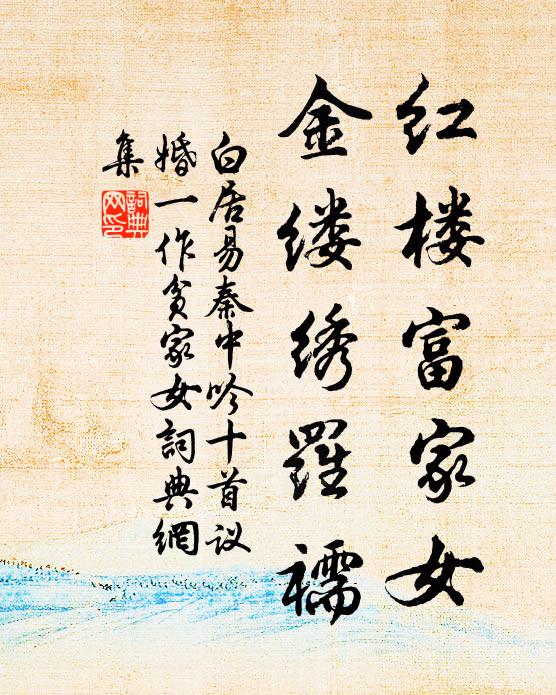 红楼富家女
金缕绣羅襦
白居易秦中吟十首议
婚一作贫家女詞典網
集
詞典
网印